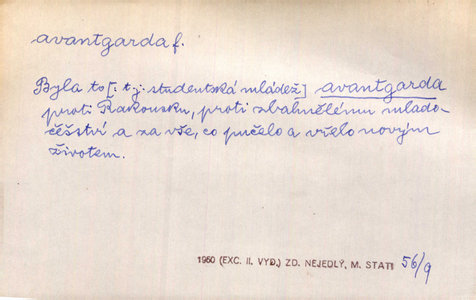 avantgarda f.
Byla to [i. t. j. studentská mládež] avantgarda
proti Rakousku, proti zbahnělému mlado-
češství a za vše, co pučelo a vřelo novým
životem.
1960 (EXC. II. VYD.) ZD. NEJEDLÝ, M. STATI 56/9